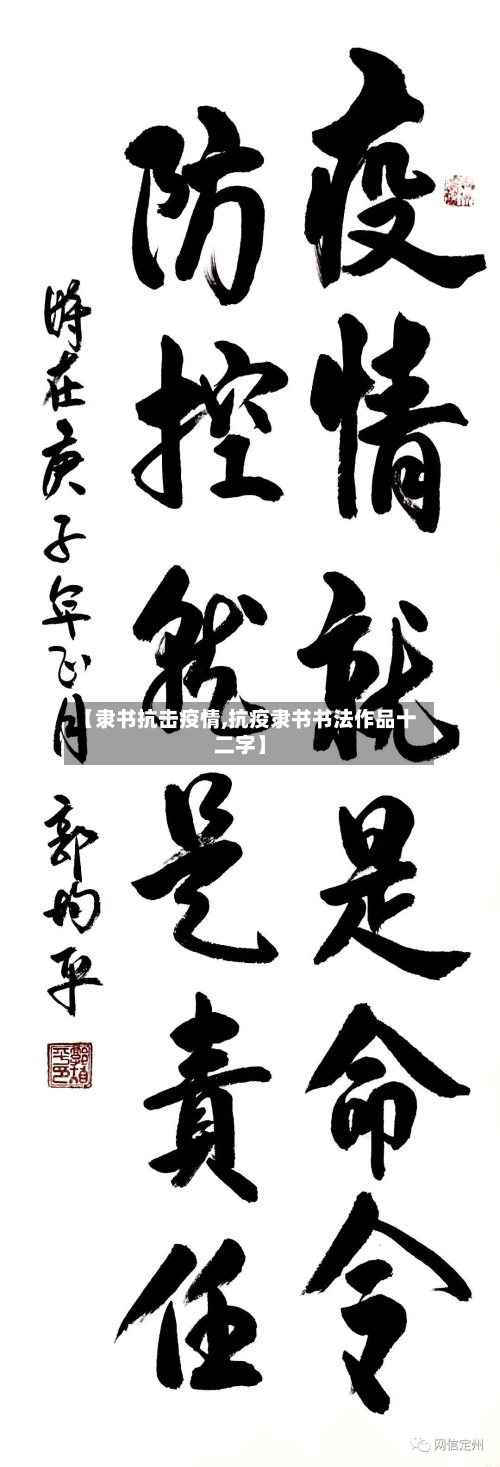 疫情就是命令
防控就是責任
時在庚子年正月 郭均平
【隶书抗击疫情,抗疫隶书书法作品十
二字】
网信定州